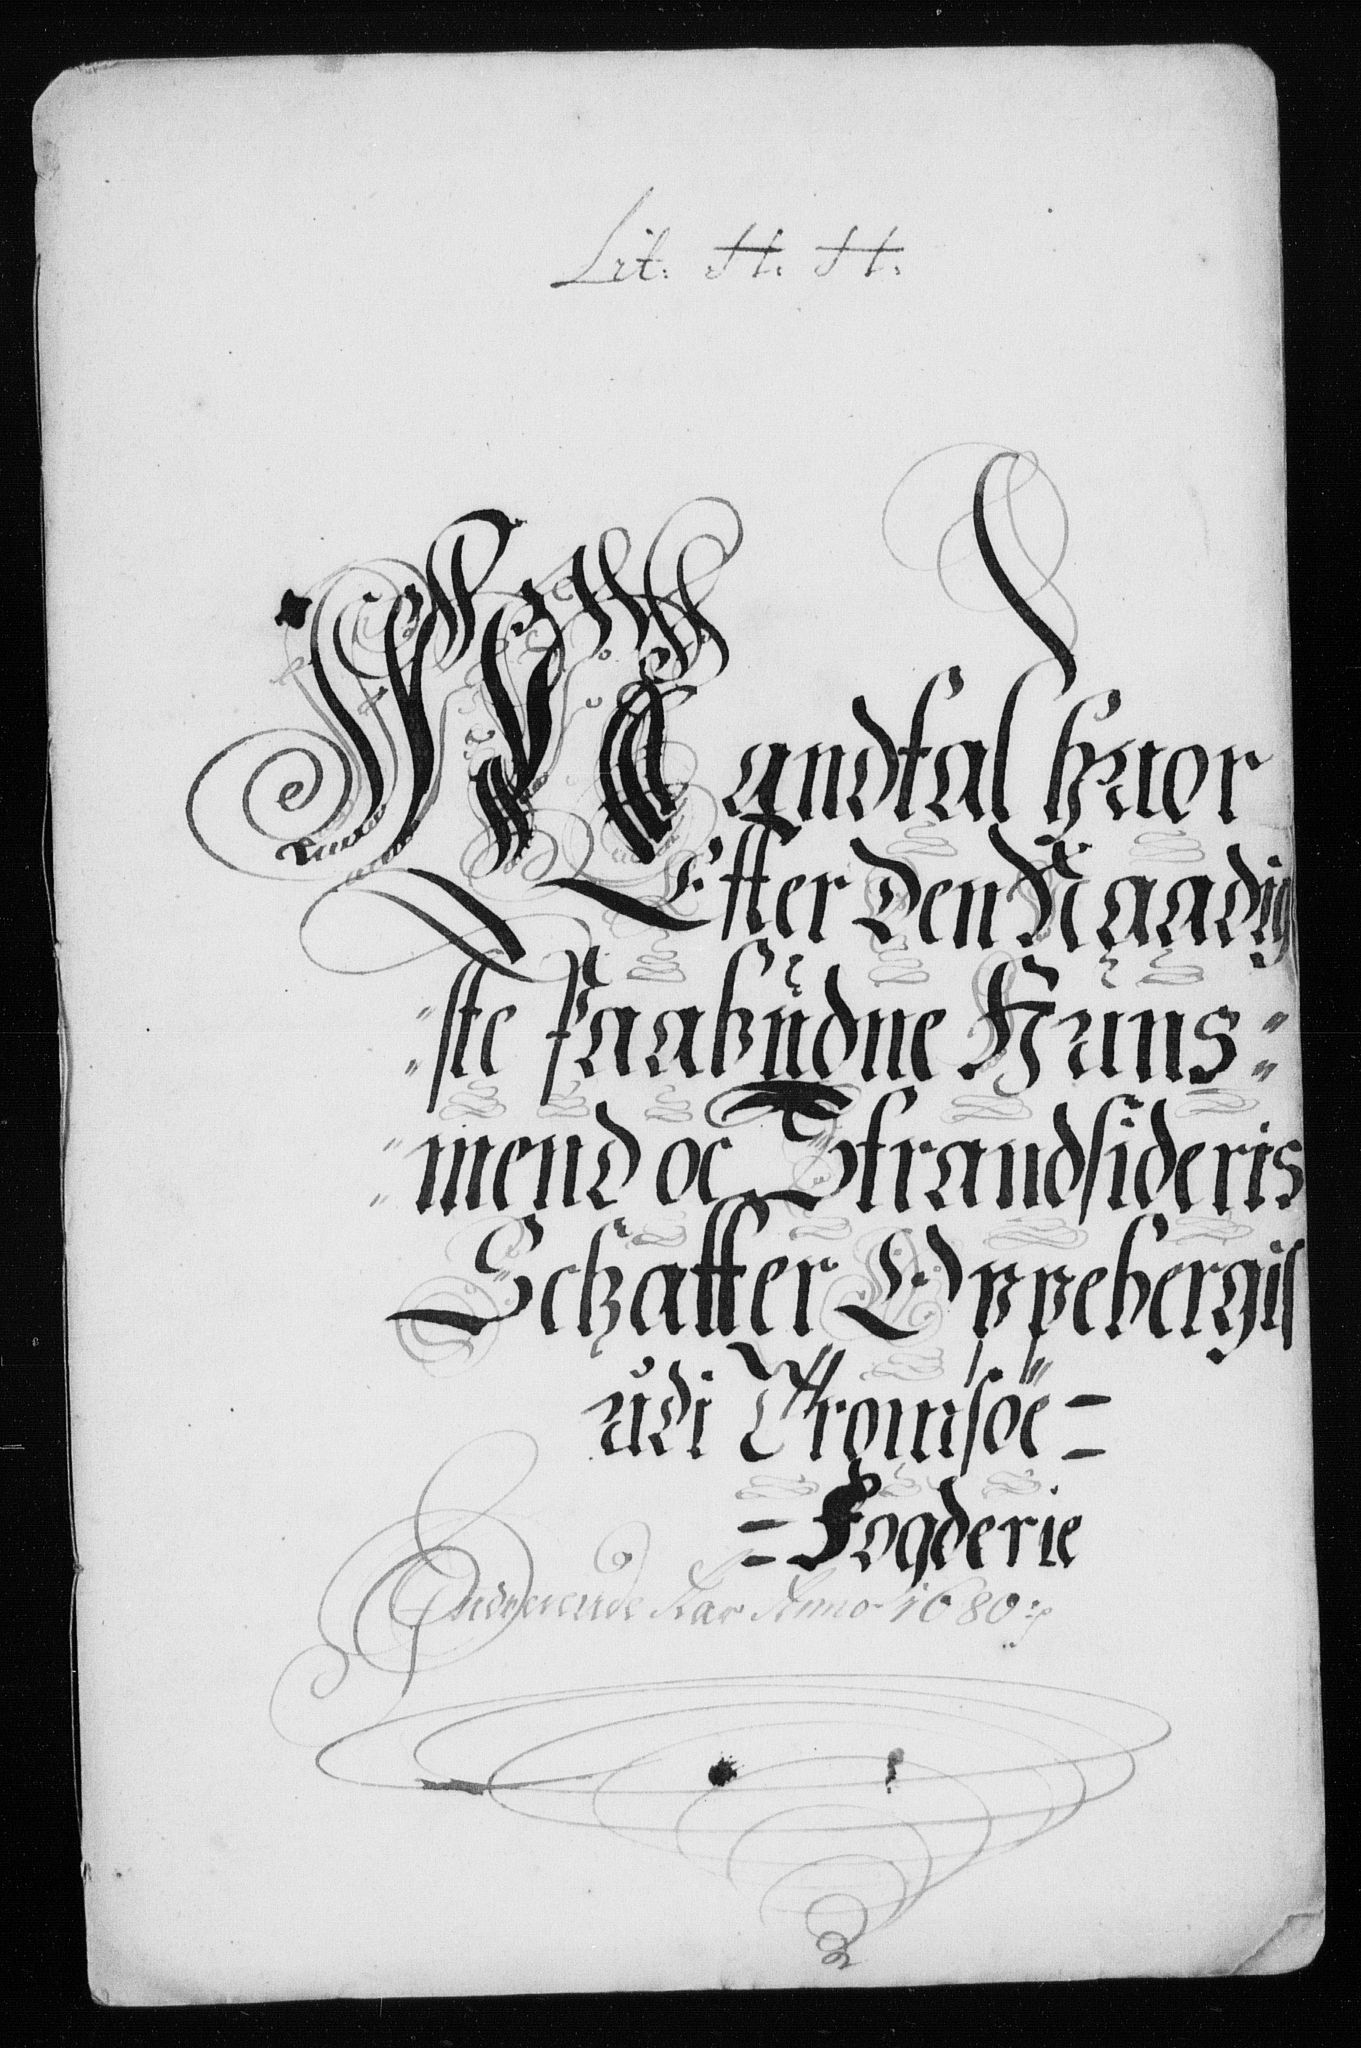 Lit. H. H.
Mandtal hvor
Effter Den Naadig
ste Paabudne Huus-
mend oc Strandsideris
Schatter Oppebergis
udi Tromsöe
Fogderie
Aar Anno 1680